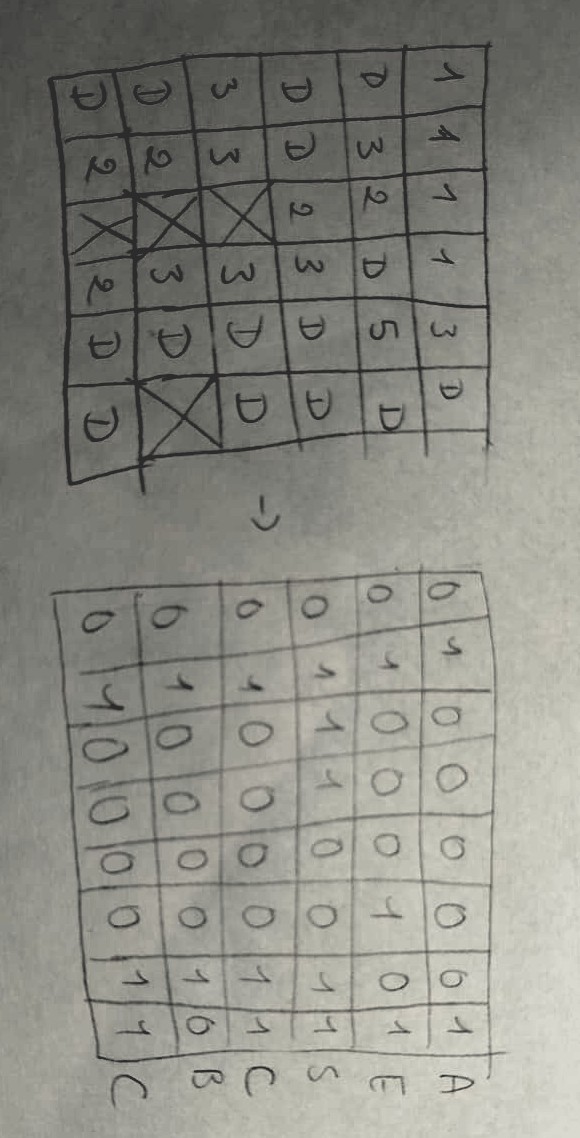 1 1 1 1 3 D
D 3 2 D 5 D
D D 2 3 D D
3 3 X 3 D D
D 2 X 3 D X
D 2 X 2 D D
→
0 1 0 0 0 0 0 1 A
0 1 0 0 0 1 0 1 E
0 1 1 1 0 0 1 1 S
0 1 0 0 0 0 1 1 C
0 1 0 0 0 0 1 0 B
0 1 0 0 0 0 1 1 C